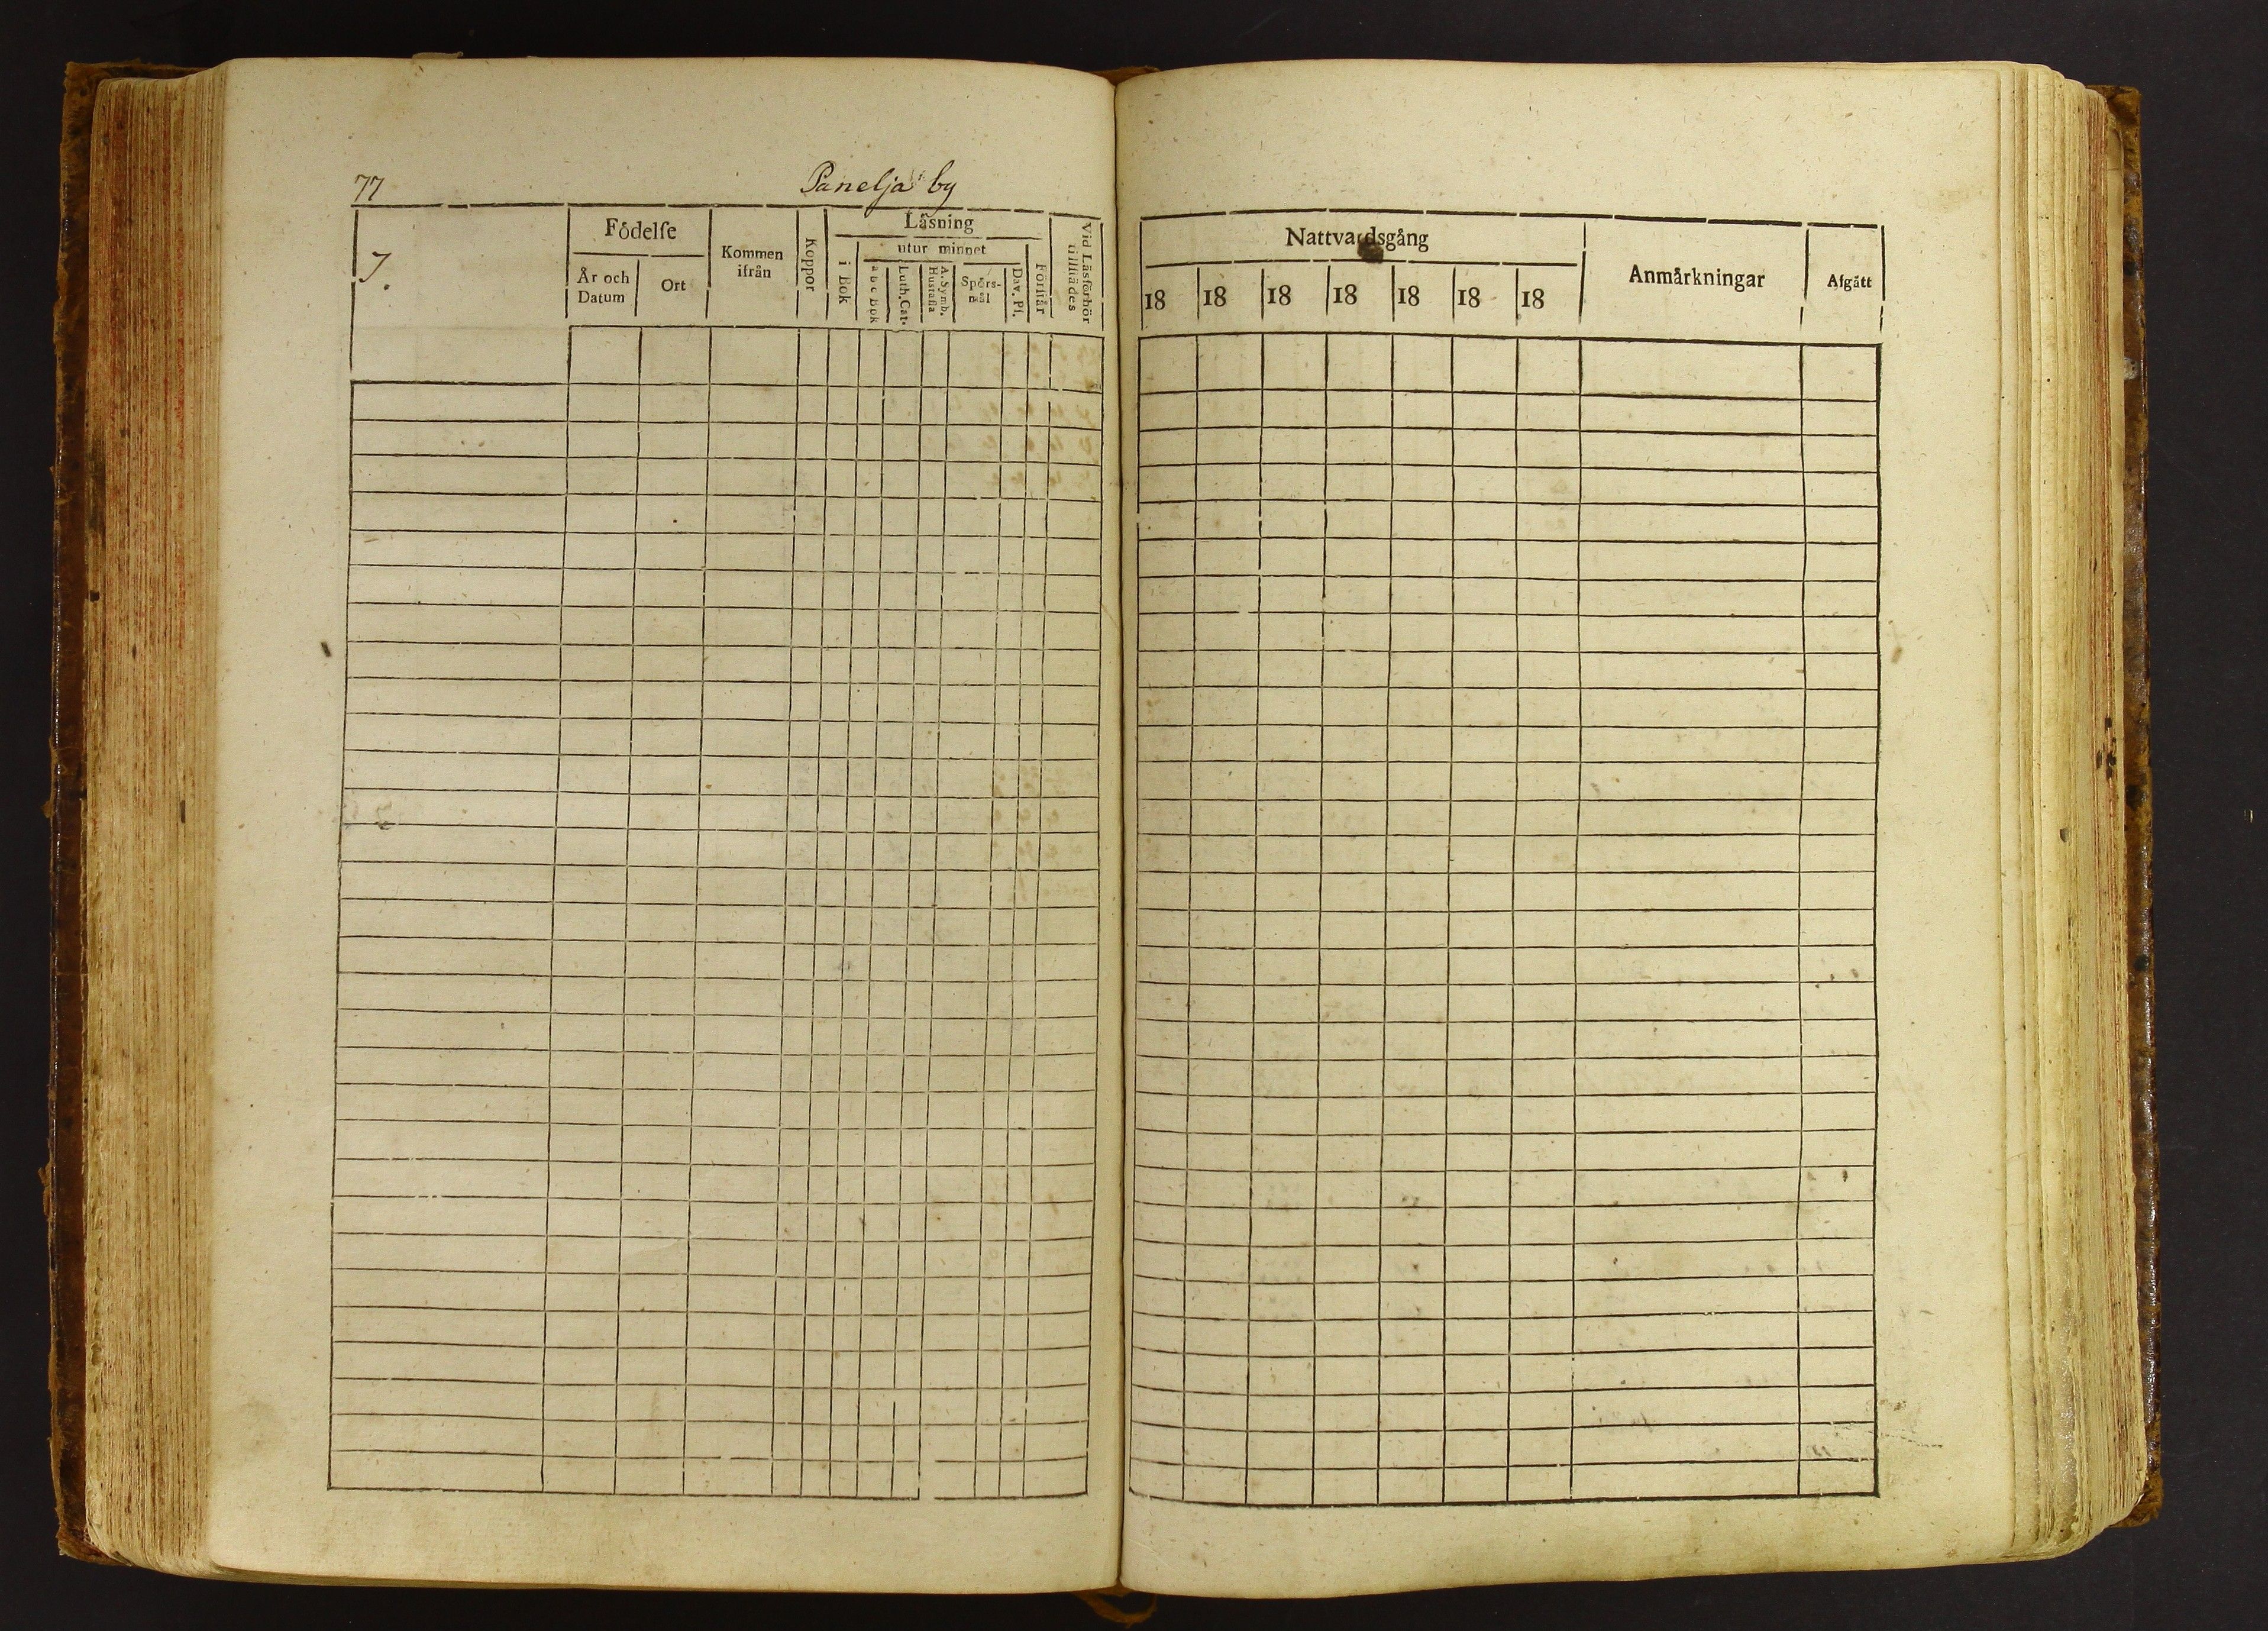 77
Panelja by
J.
Födelſe
År och
Datum
Ort
Kommen
ifrån
Koppor
Läsning
i Bok
utur minnet
a b c Bok
Luth. Cat.
A. Symb.
Hustafla
Spörs-
mål
Dav. Pſ.
Förſtår
Vid Läsförhör
tillſtädes
Nattvardsgång
18 18 18 18 18 18 18
Anmärkningar
Afgått